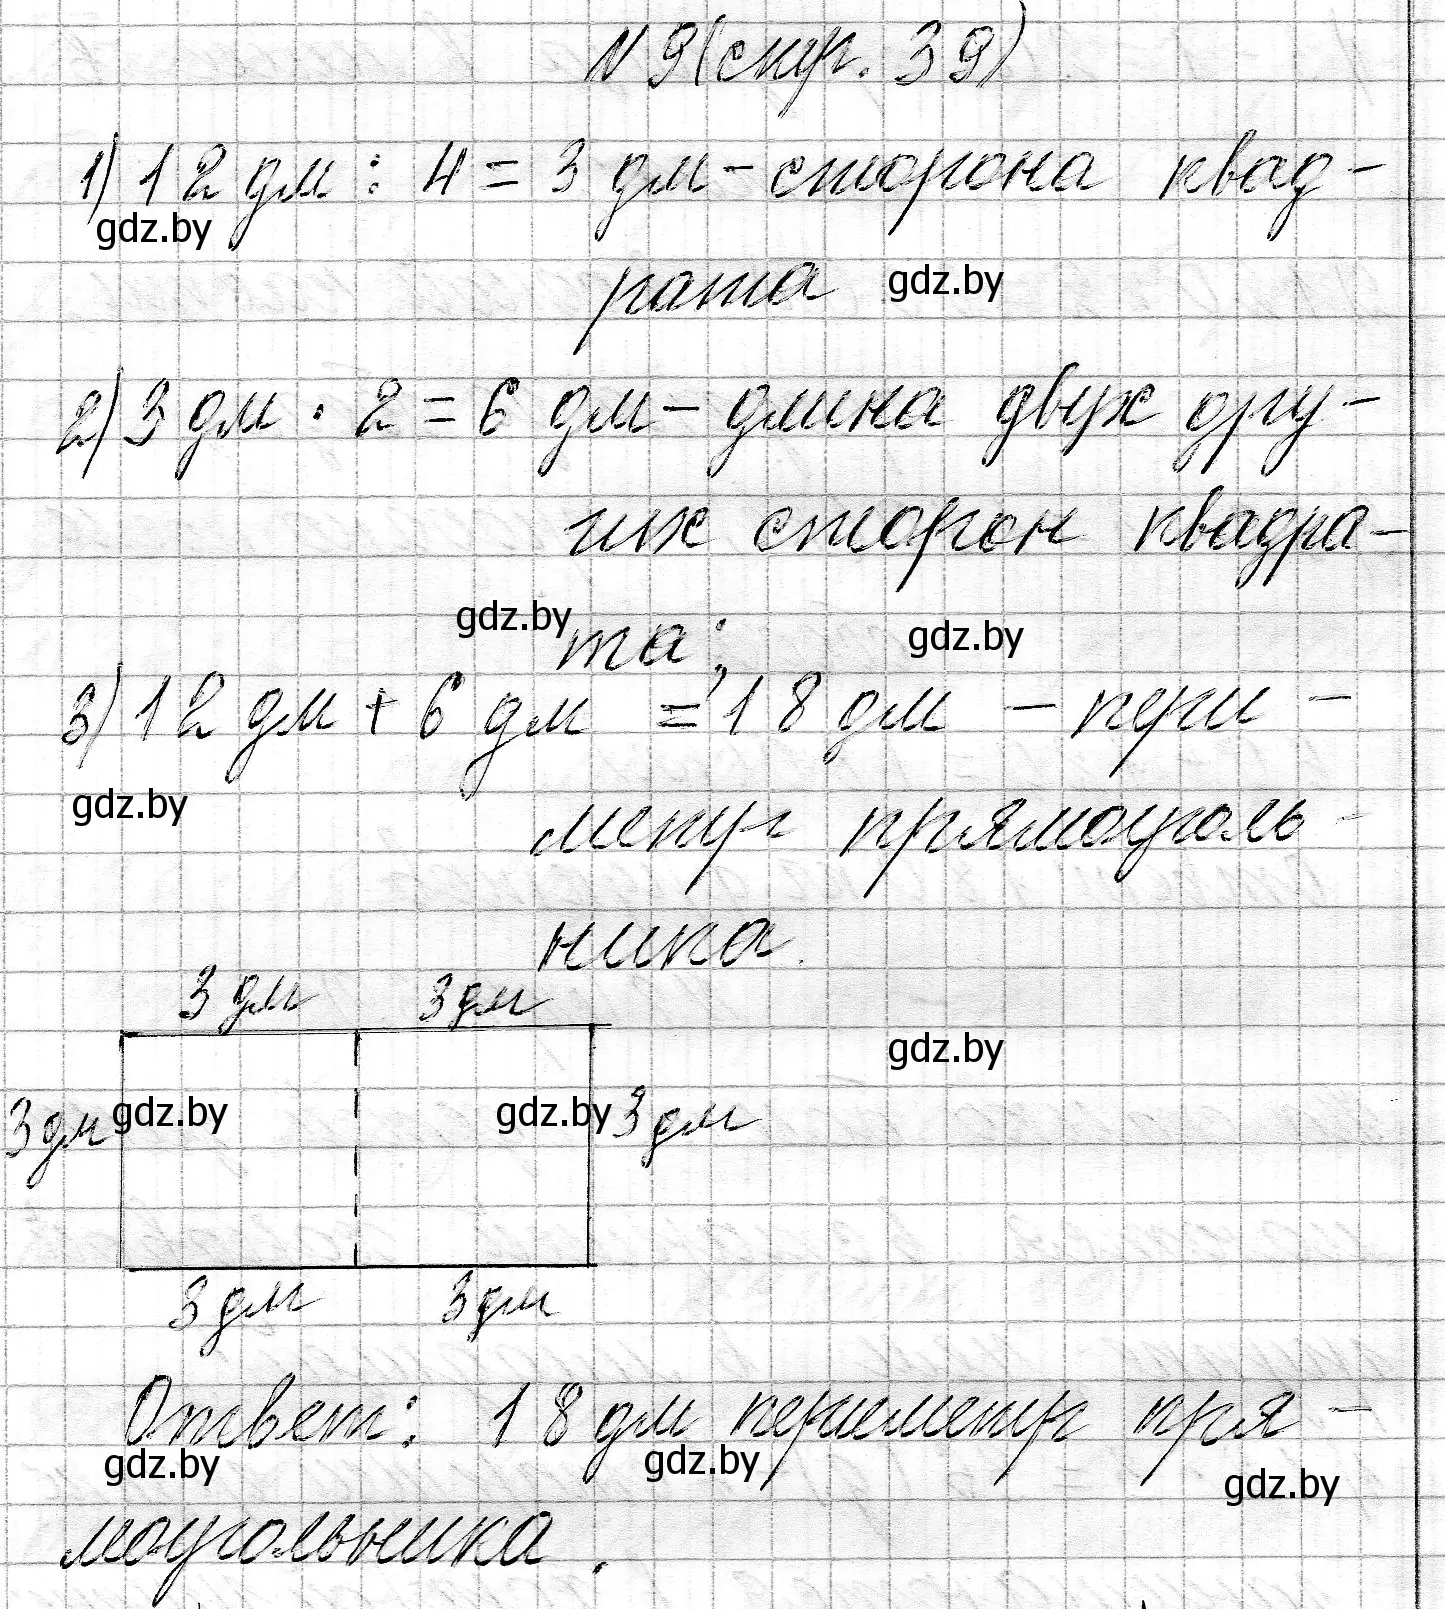 № 9 (стр. 39)
1) 12 дм : 4 = 3 дм - сторона квад-
gdz.by
рата gdz.by
2) 3 дм · 2 = 6 дм - длина двух дру-
гих сторон квадра-
gdz.by та; gdz.by
3) 12 дм + 6 дм = 18 дм - пери-
gdz.by
метр прямоуголь-
ника.
3 дм 3 дм
gdz.by
3 дм gdz.by gdz.by 3 дм
3 дм 3 дм
Ответ: 18 дм периметр пря-
gdz.by gdz.by gdz.by
моугольника.